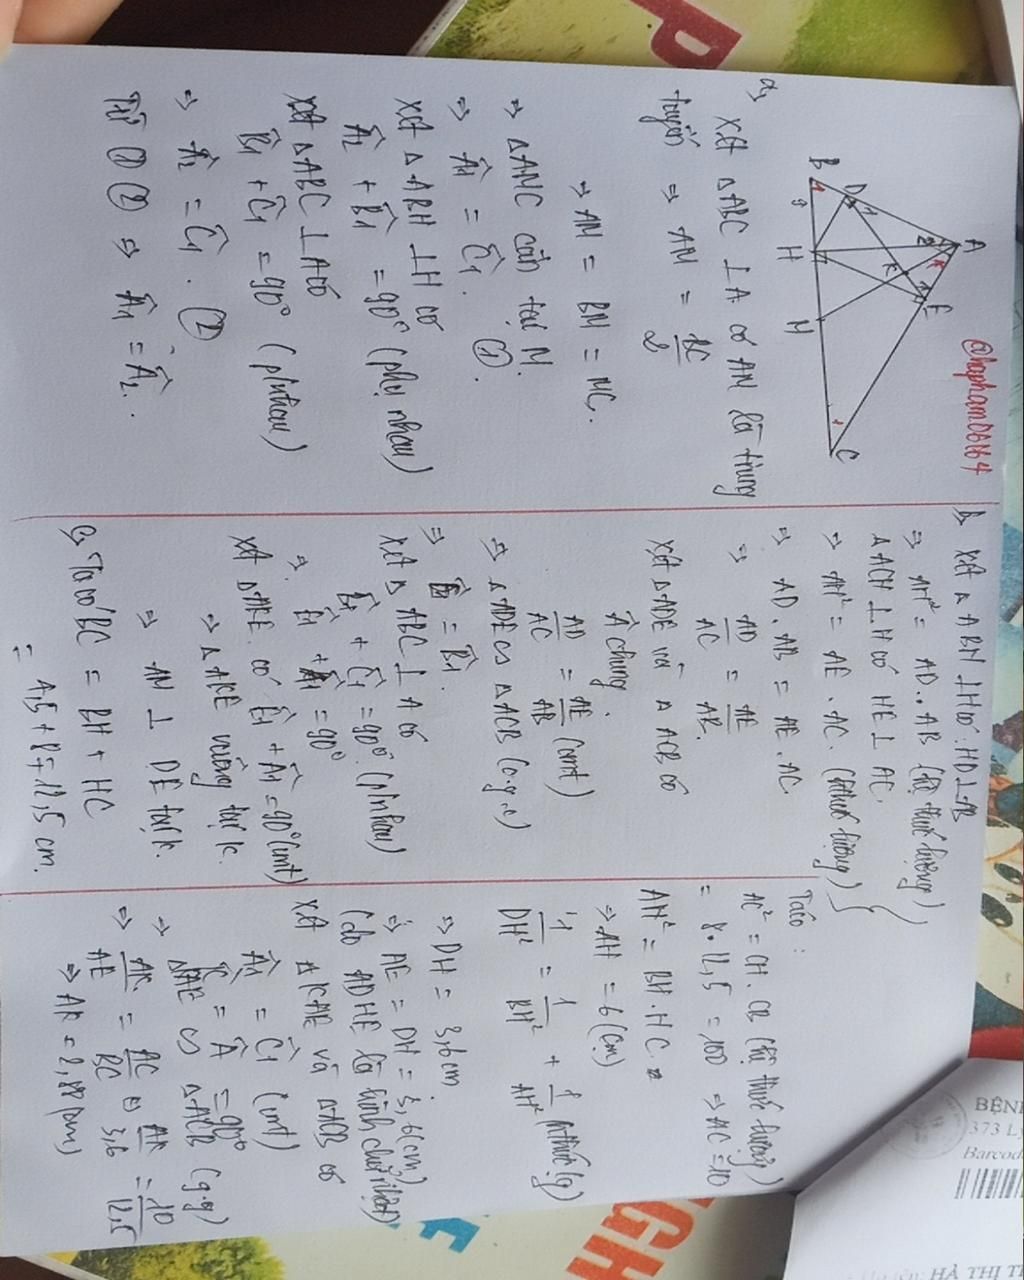 @hapham06164
A
B
C
D
E
H
M
K
a,
Xét △ABC ⊥A có AM là trung
tuyến ⇒ AM = BC/2
⇒ AM = BM = MC.
⇒ △AMC cân tại M.
⇒ Â1 = Ĉ1. ①.
Xét △ABH ⊥H có
Â2 + B̂1 = 90° (phụ nhau)
Xét △ABC ⊥A có
B̂1 + Ĉ1 = 90° (pnhau)
⇒ Â2 = Ĉ1. ②
Từ ① ② ⇒ Â1 = Â2.
b, Xét △ABH ⊥H có: HD⊥AB
⇒ AH² = AD.AB (hệ thức lượng)
△ACH ⊥H có HE⊥AC.
⇒ AH² = AE.AC. (hthức lượng)
⇒ AD.AB = AE.AC.
⇒ AD/AC = AE/AB.
Xét △ADE và △ACB có
 chung.
AD/AC = AE/AB (cmt)
⇒ △ADE ∽ △ACB (c.g.c)
⇒ Ê1 = B̂1.
Xét △ABC ⊥A có
B̂1 + Ĉ1 = 90° (pnhau)
⇒ Ê1 + Â1 = 90°
Xét △AKE có Ê1 + Â1 = 90° (cmt)
⇒ △AKE vuông tại K.
⇒ AM ⊥ DE tại K.
c, Ta có BC = BH + HC
= 4,5 + 8 = 12,5 cm.
Ta có :
AC² = CH.CB (hệ thức lượng)
= 8.12,5 = 100 ⇒ AC = 10
AH² = BH.HC.
⇒ AH = 6 (cm)
1/DH² = 1/BH² + 1/AH² (hthức lg)
⇒ DH = 3,6cm
⇒ AE = DH = 3,6(cm)
(do ADHE là hình chữ nhật)
Xét △KAE và △ACB có
Â1 = Ĉ1 (cmt)
K̂ = Â = 90°
⇒ △KAE ∽ △ACB (g.g)
⇒ AK/AE = AC/BC ⇔ AK/3,6 = 10/12,5
⇒ AK = 2,88(cm)
BỆN
373 L
Barcod
HÀ THỊ T